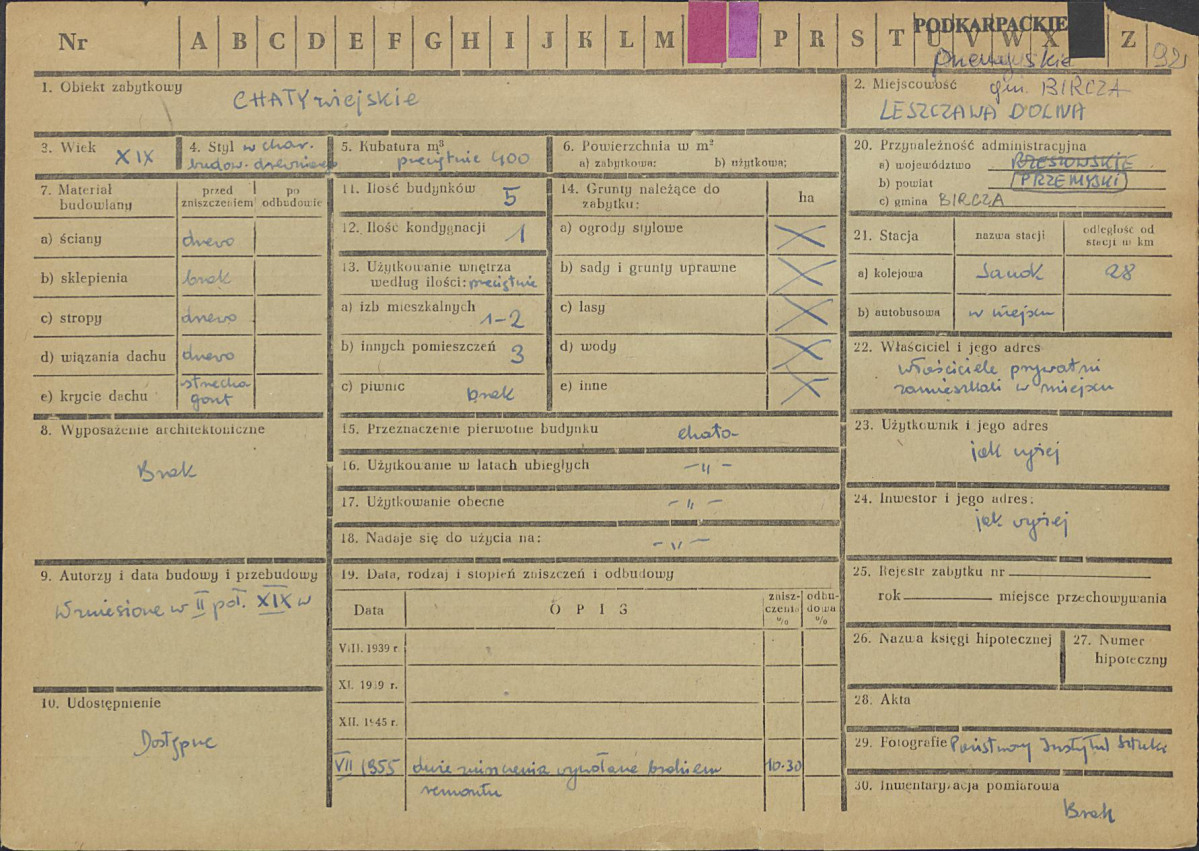 Nr A B C D E F G H I J K L M P R S T U V W X Z
PODKARPACKIE
92
1. Obiekt zabytkowy
CHATY wiejskie
2. Miejscowość gm. BIRCZA
LESZCZAWA DOLNA
3. Wiek
XIX
4. Styl w char.
budow. drewnianego
5. Kubatura m³
przeciętnie 400
6. Powierzchnia w m²
a) zabytkowa: b) użytkowa:
7. Materiał
budowlany
przed
zniszczeniem
po
odbudowie
a) ściany drewo
b) sklepienia brak
c) stropy drewo
d) wiązania dachu drewo
e) krycie dachu strzecha
gont
8. Wyposażenie architektoniczne
Brak
9. Autorzy i data budowy i przebudowy
Wzniesione w II poł. XIX w
10. Udostępnienie
Dostępne
11. Ilość budynków 5
12. Ilość kondygnacji 1
13. Użytkowanie wnętrza
według ilości: przeciętnie
a) izb mieszkalnych
1-2
b) innych pomieszczeń 3
c) piwnic brak
14. Grunty należące do
zabytku:
ha
a) ogrody stylowe X
b) sady i grunty uprawne X
c) lasy X
d) wody X
e) inne X
15. Przeznaczenie pierwotne budynku chata
16. Użytkowanie w latach ubiegłych -"-
17. Użytkowanie obecne -"-
18. Nadaje się do użycia na: -"-
19. Data, rodzaj i stopień zniszczeń i odbudowy
Data
OPIS
znisz-
czenia
%
odbu-
dowa
%
VIII. 1939 r.
XI. 1939 r.
XII. 1945 r.
VII 1955 duże zniszczenia wywołane brakiem 10-30
remontu
20. Przynależność administracyjna
a) województwo RZESZOWSKIE
b) powiat PRZEMYSKI
c) gmina BIRCZA
21. Stacja
nazwa stacji
odległość od
stacji w km
a) kolejowa Sanok 28
b) autobusowa w miejscu
22. Właściciel i jego adres
właściciele prywatni
zamieszkali w miejscu
23. Użytkownik i jego adres
jak wyżej
24. Inwestor i jego adres:
jak wyżej
25. Rejestr zabytku nr
rok miejsce przechowywania
26. Nazwa księgi hipotecznej
27. Numer
hipoteczny
28. Akta
29. Fotografie Państwowy Instytut Sztuki
30. Inwentaryzacja pomiarowa
Brak